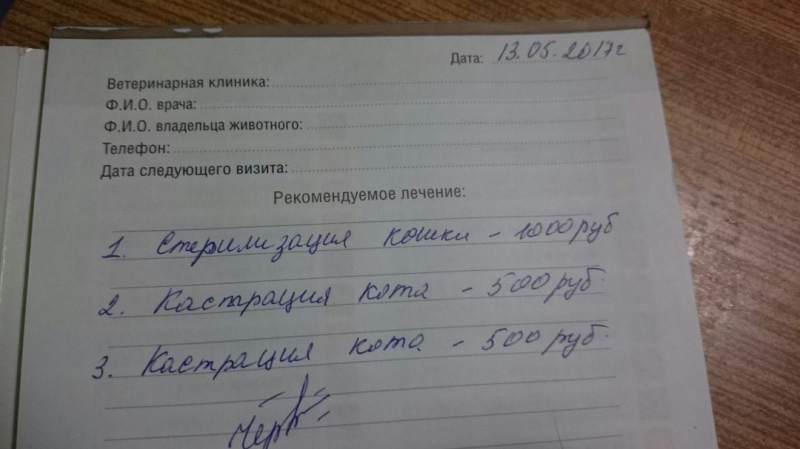 Дата: 13.05.2017г
Ветеринарная клиника:
Ф.И.О. врача:
Ф.И.О. владельца животного:
Телефон:
Дата следующего визита:
Рекомендуемое лечение:
1. Стерилизация кошки - 1000 руб
2. Кастрация кота - 500 руб.
3. Кастрация кота. - 500 руб.